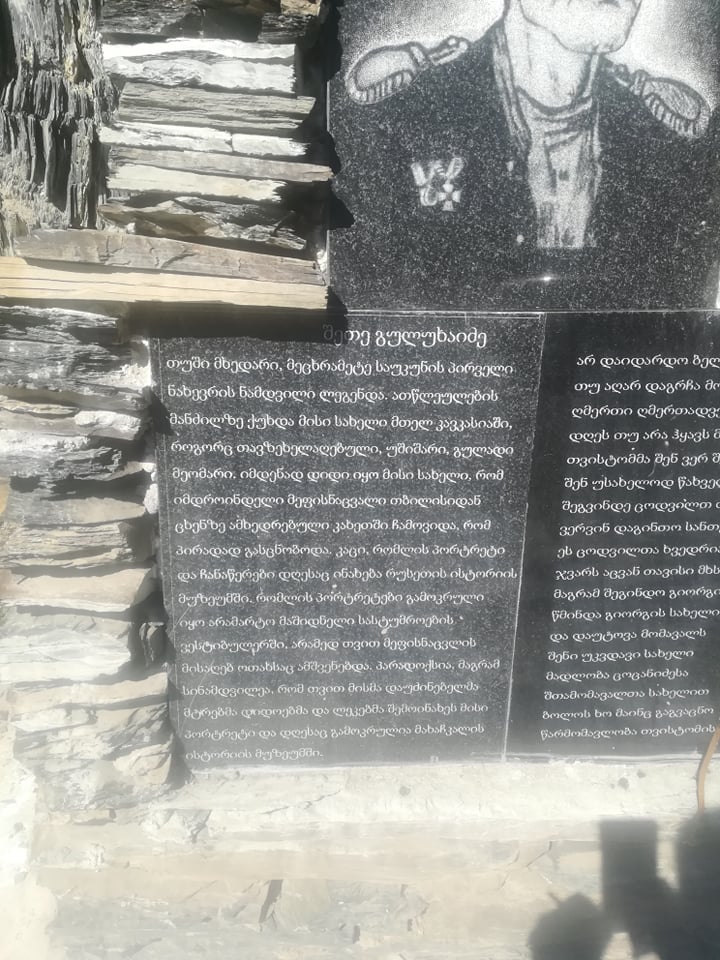 შეთე გულუხაიძე
თუში მხედარი, მეცხრამეტე საუკუნის პირველი
ნახევრის ნამდვილი ლეგენდა. ათწლეულების
მანძილზე ქუხდა მისი სახელი მთელ კავკასიაში,
როგორც თავზეხელაღებული, უშიშარი, გულადი
მეომარი. იმდენად დიდი იყო მისი სახელი, რომ
იმდროინდელი მეფისნაცვალი თბილისიდან
ცხენზე ამხედრებული კახეთში ჩამოვიდა, რომ
პირადად გასცნობოდა. კაცი, რომლის პორტრეტი
და ჩანაწერები დღესაც ინახება რუსეთის ისტორიის
მუზეუმში. რომლის პორტრეტები გამოკრული
იყო არამარტო მაშიდნელი სასტუმროების
ვესტიბულერში, არამედ თვით მეფისნაცვლის
მისაღებ ოთახსაც ამშვენებდა. პარადოქსია, მაგრამ
სინამდვილეა, რომ თვით მისმა დაუძინებელმა
მტრებმა დიდოებმა და ლეკებმა შემოინახეს მისი
პორტრეტი და დღესაც გამოკრულია მახაჩკალის
ისტორიის მუზეუმში.
არ დაიდარდო
თუ აღარ დაგრჩა
ღმერთი
დღეს თუ არა ჰყავს
თვისტომმა შენ ვერ
შენ უსახელოდ
შეგვინდე ცოდვილთ
ვერვინ დაგინთო
ეს ცოდვილთა
ჯვარს აცვან თავისი
მაგრამ შეგინდო
წმინდა გიორგის სახელი
და დაუტოვა მომავალს
შენი უკვდავი სახელი
მადლობა ცოცანიძესა
შთამომავალთა სახელით
ბოლოს ხო მაინც გაგვაცნო
წარმომავლობა თვისტომის